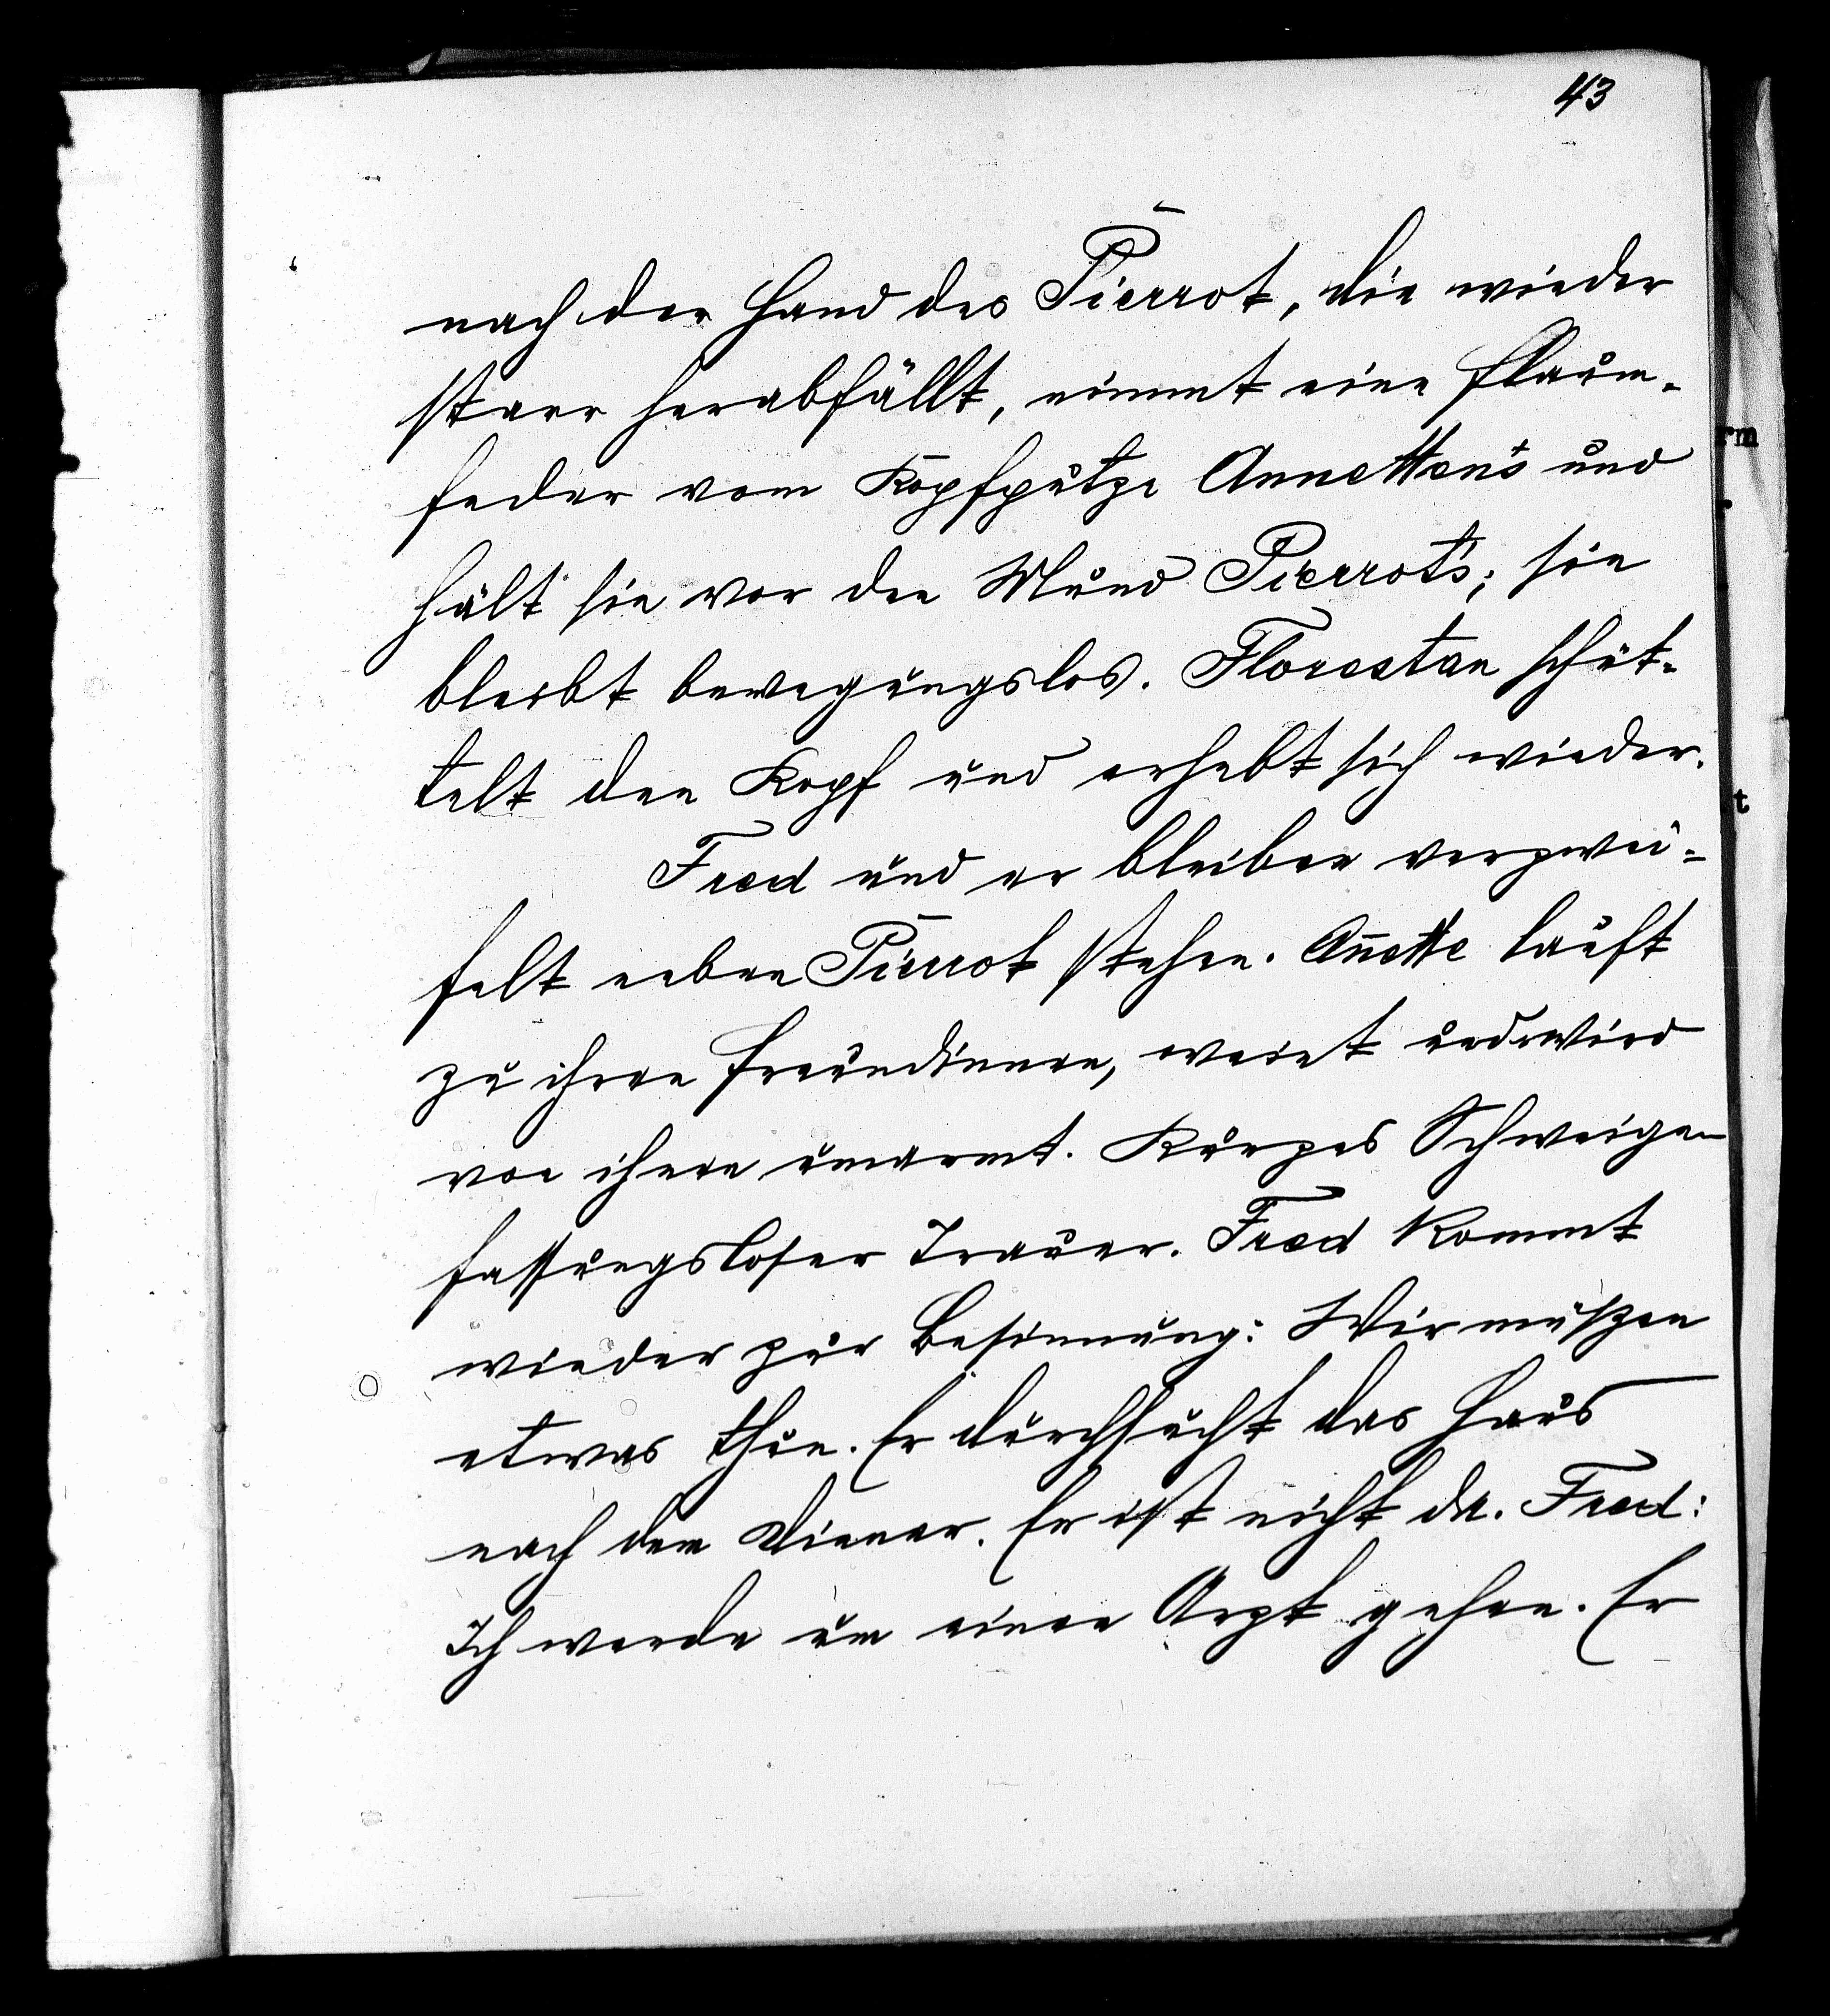 43
nach der Hand des Pierrot, die wieder
starr herabfällt, nimmt eine Flaum=
feder vom Kopfputze Annetten's und
hält sie vor den Mund Pierrot's; sie
bleibt bewegungslos. Florestan schüt=
telt den Kopf und erhebt sich wieder.
Fred und er bleiben verzwei=
felt neben Pierrot stehen. An̄ette läuft
zu ihren Freundinnen, weint und wird
von ihnen umarmt. Kurzes Schweigen
fassungsloser Trauer. Fred kommt
wieder zur Besinnung: Wir müßen
etwas thun. Er durchsucht das Haus
nach dem Diener. Er ist nicht da. Fred:
Ich werde um einen Arzt gehen. Er
rm
t